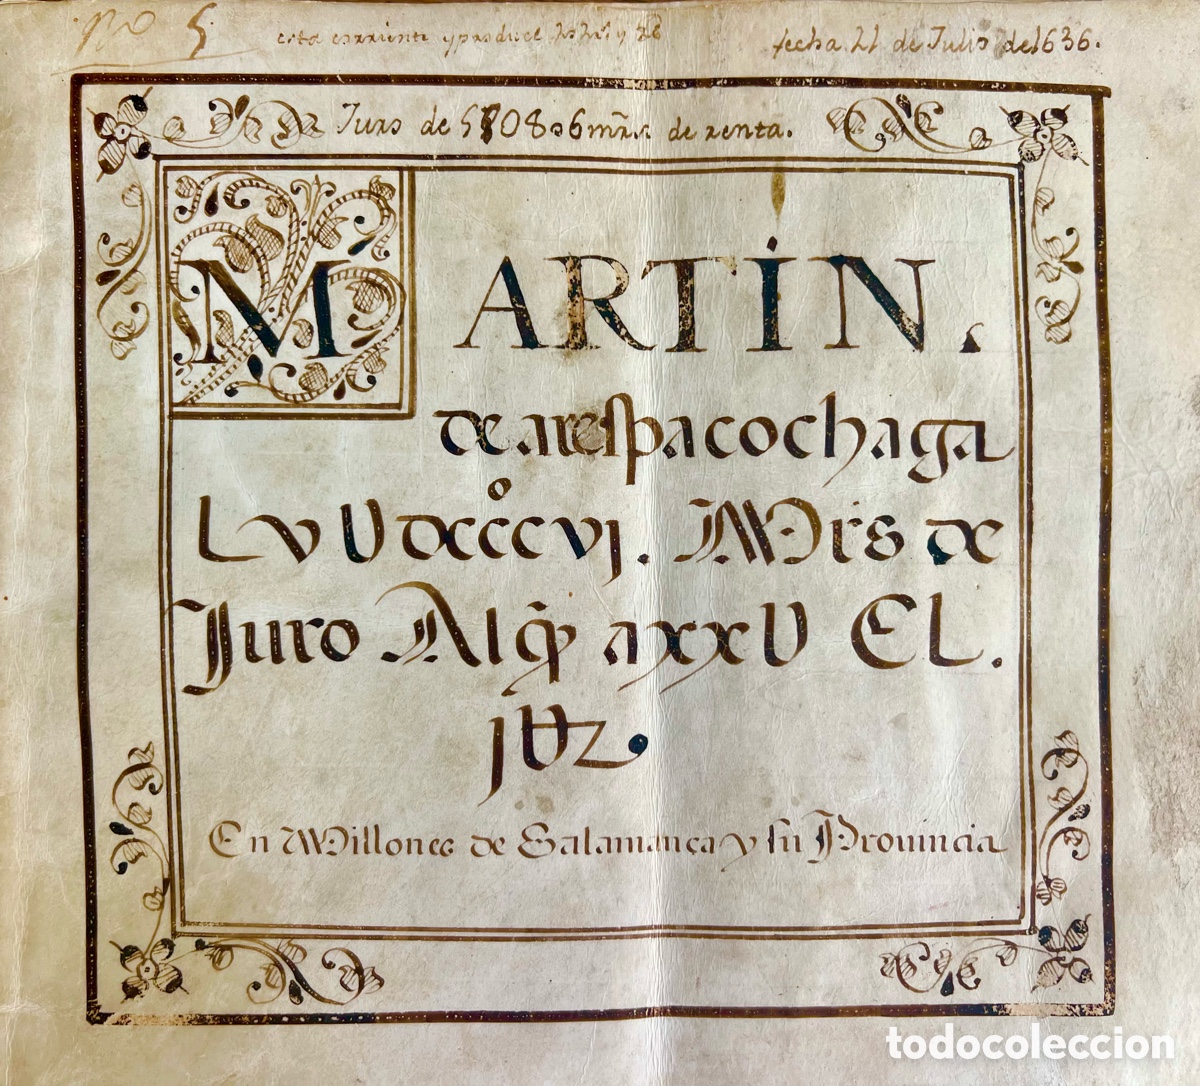 Nº 5
esta corriente y produce
fecha 21 de Julio de 1636.
Juro de 570806 mrs. de renta.
MARTIN.
de arespacochaga
LvUdccc̊vj. Mrs de
Juro Alq̃ axxU EL.
jUz.
En Millones de Salamanca y su Prouincia
todocoleccion